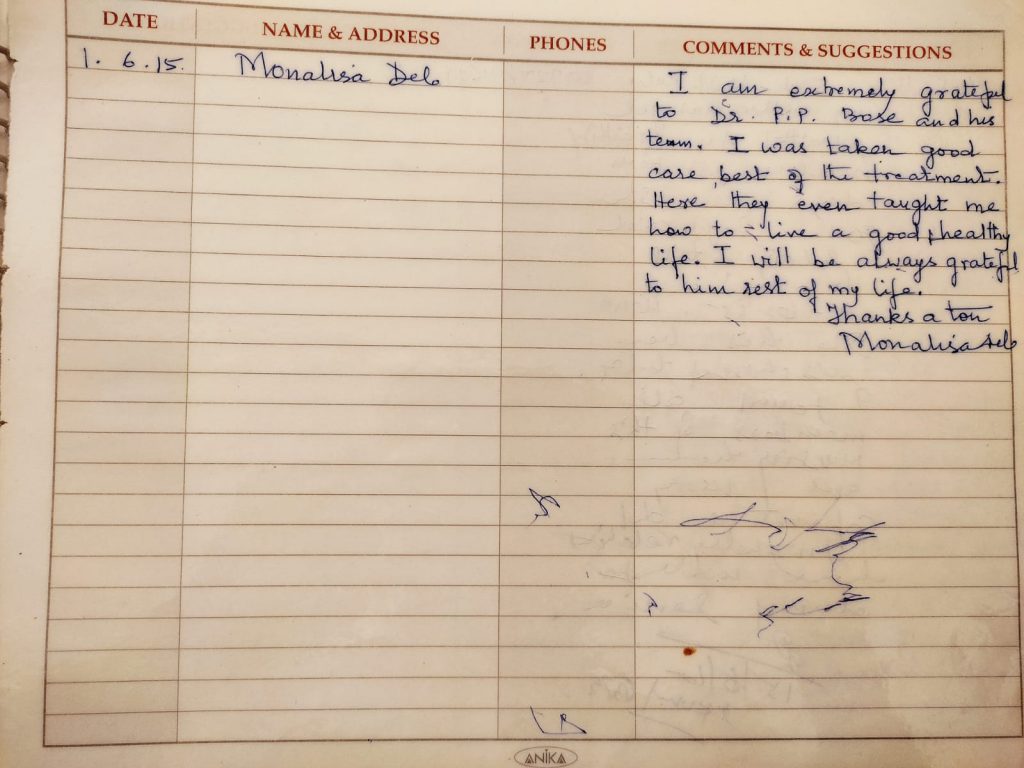 DATE NAME & ADDRESS PHONES COMMENTS & SUGGESTIONS
1. 6. 15. Monalisa Deb
I am extremely grateful
to Dr. P.P. Bose and his
team. I was taken good
care, best of the treatment.
Here they even taught me
how to live a good, healthy
life. I will be always grateful
to him rest of my life.
Thanks a ton
Monalisa Deb
ANIKA